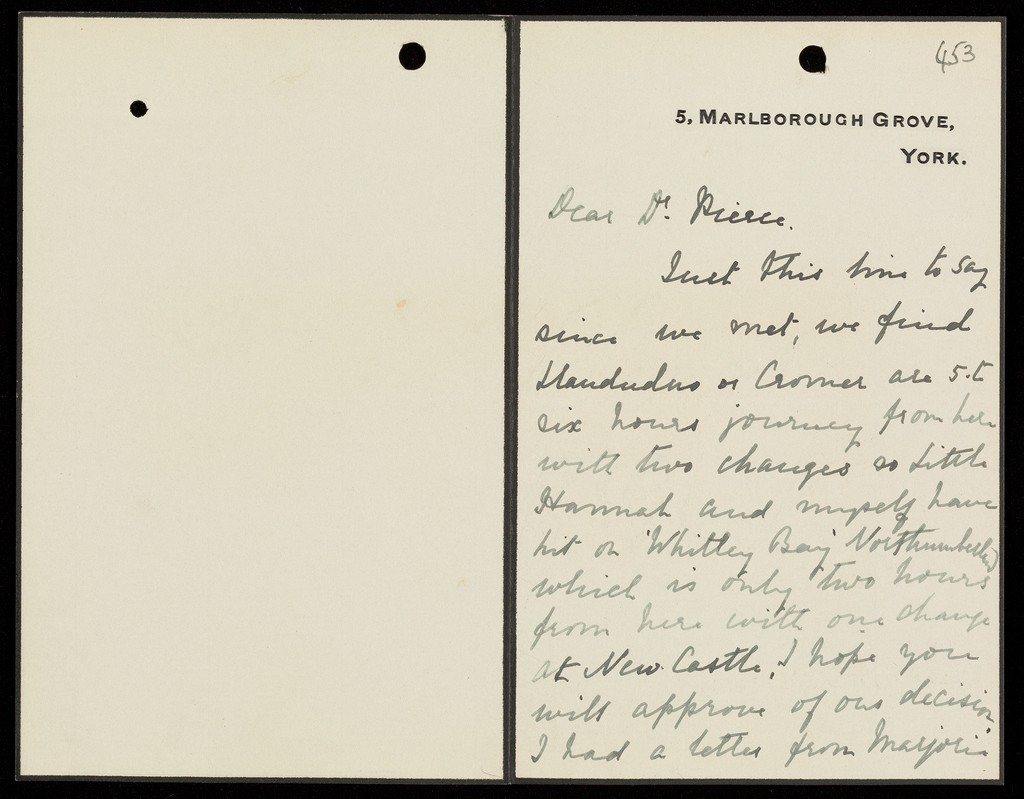 453
5, MARLBOROUGH GROVE,
YORK.
Dear Dr. Pierce.
Just this line to say
since we met, we find
Llandudno or Cromer are 5.t
six hours journey from here
with two changes so Little
Hannah and myself have
hit on 'Whitley Bay' Northumberland
which is only two hours
from here with one change
at New Castle, I hope you
will approve of our decision
I had a letter from Marjorie